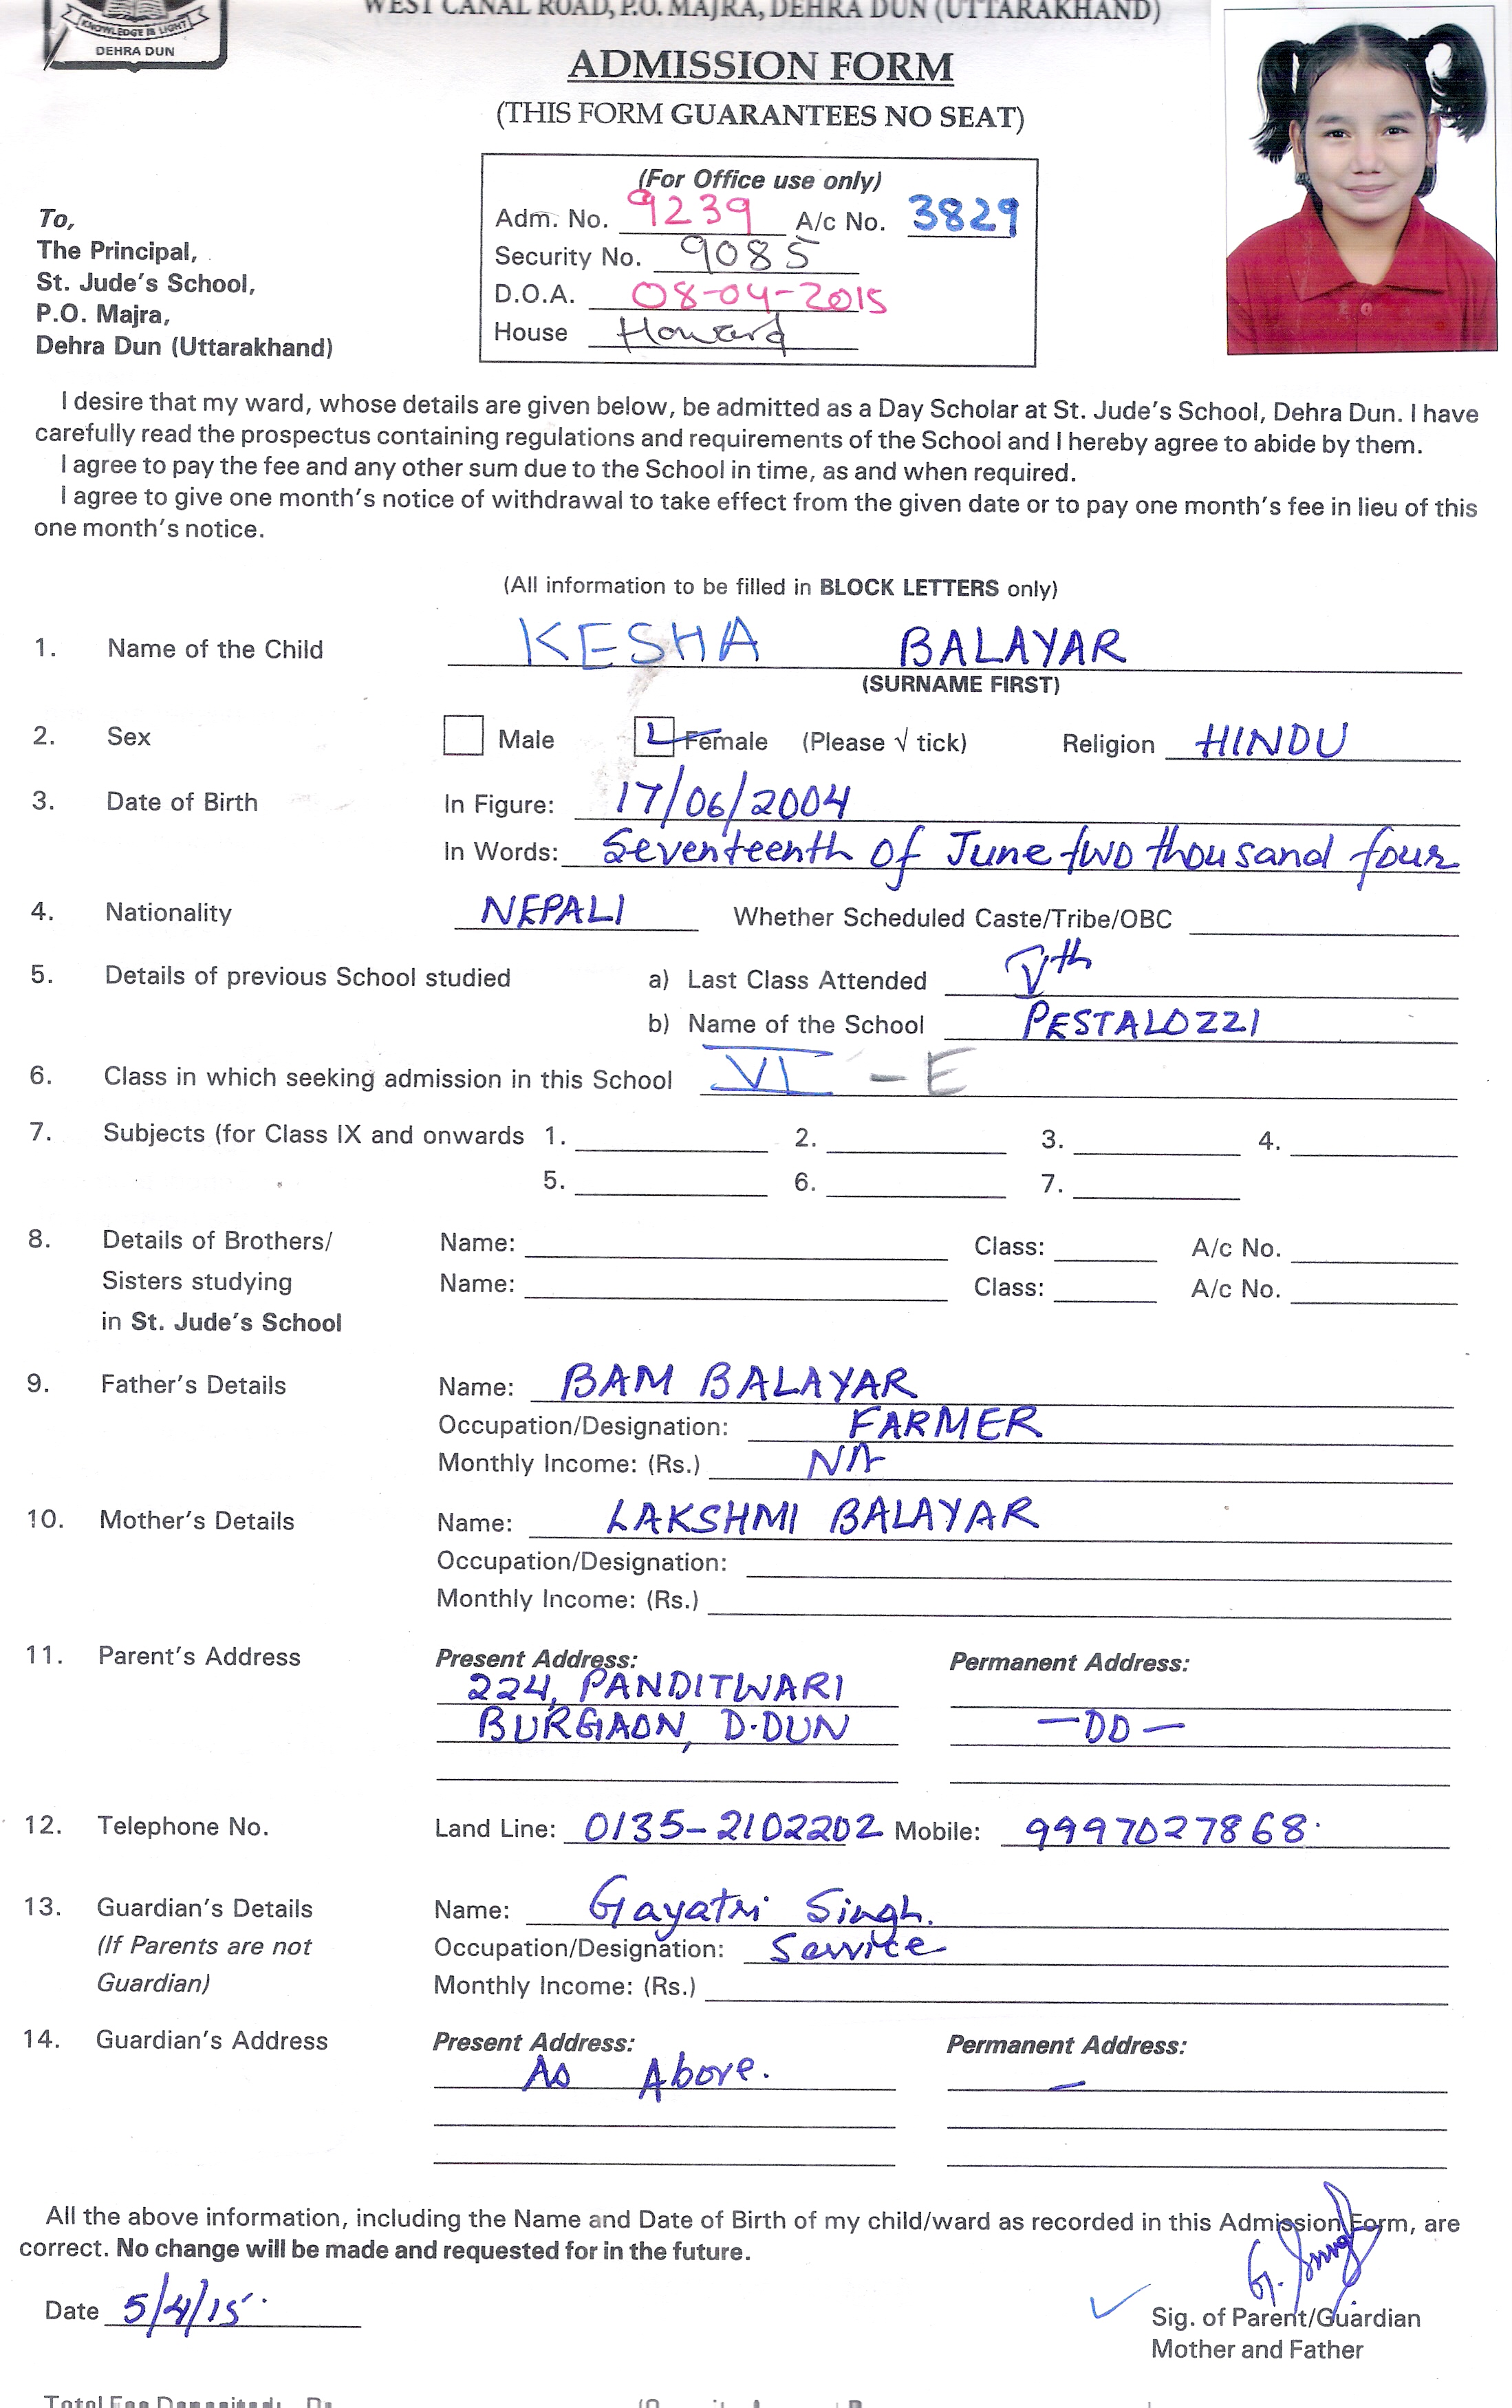 KNOWLEDGE IS LIGHT
DEHRA DUN
WEST CANAL ROAD, P.O. MAJRA, DEHRA DUN (UTTARAKHAND)
ADMISSION FORM
(THIS FORM GUARANTEES NO SEAT)
(For Office use only)
Adm. No. 9239 A/c No. 3829
Security No. 9085
D.O.A. 08-04-2015
House Howard
To,
The Principal,
St. Jude's School,
P.O. Majra,
Dehra Dun (Uttarakhand)
I desire that my ward, whose details are given below, be admitted as a Day Scholar at St. Jude's School, Dehra Dun. I have
carefully read the prospectus containing regulations and requirements of the School and I hereby agree to abide by them.
I agree to pay the fee and any other sum due to the School in time, as and when required.
I agree to give one month's notice of withdrawal to take effect from the given date or to pay one month's fee in lieu of this
one month's notice.
(All information to be filled in BLOCK LETTERS only)
1. Name of the Child KESHA BALAYAR
(SURNAME FIRST)
2. Sex Male Female (Please √ tick) Religion HINDU
3. Date of Birth In Figure: 17/06/2004
In Words: Seventeenth of June two thousand four
4. Nationality NEPALI Whether Scheduled Caste/Tribe/OBC
5. Details of previous School studied a) Last Class Attended Vth
b) Name of the School PESTALOZZI
6. Class in which seeking admission in this School VI - E
7. Subjects (for Class IX and onwards 1. 2. 3. 4.
5. 6. 7.
8. Details of Brothers/ Name: Class: A/c No.
Sisters studying Name: Class: A/c No.
in St. Jude's School
9. Father's Details Name: BAM BALAYAR
Occupation/Designation: FARMER
Monthly Income: (Rs.) NA
10. Mother's Details Name: LAKSHMI BALAYAR
Occupation/Designation:
Monthly Income: (Rs.)
11. Parent's Address Present Address: Permanent Address:
224, PANDITWARI
BURGAON, D.DUN —DO—
12. Telephone No. Land Line: 0135-2102202 Mobile: 9997027868.
13. Guardian's Details Name: Gayatri Singh.
(If Parents are not Occupation/Designation: Service
Guardian) Monthly Income: (Rs.)
14. Guardian's Address Present Address: Permanent Address:
As Above. —
All the above information, including the Name and Date of Birth of my child/ward as recorded in this Admission Form, are
correct. No change will be made and requested for in the future.
G. Singh
Date 5/4/15
Sig. of Parent/Guardian
Mother and Father
Total Fee Deposited: